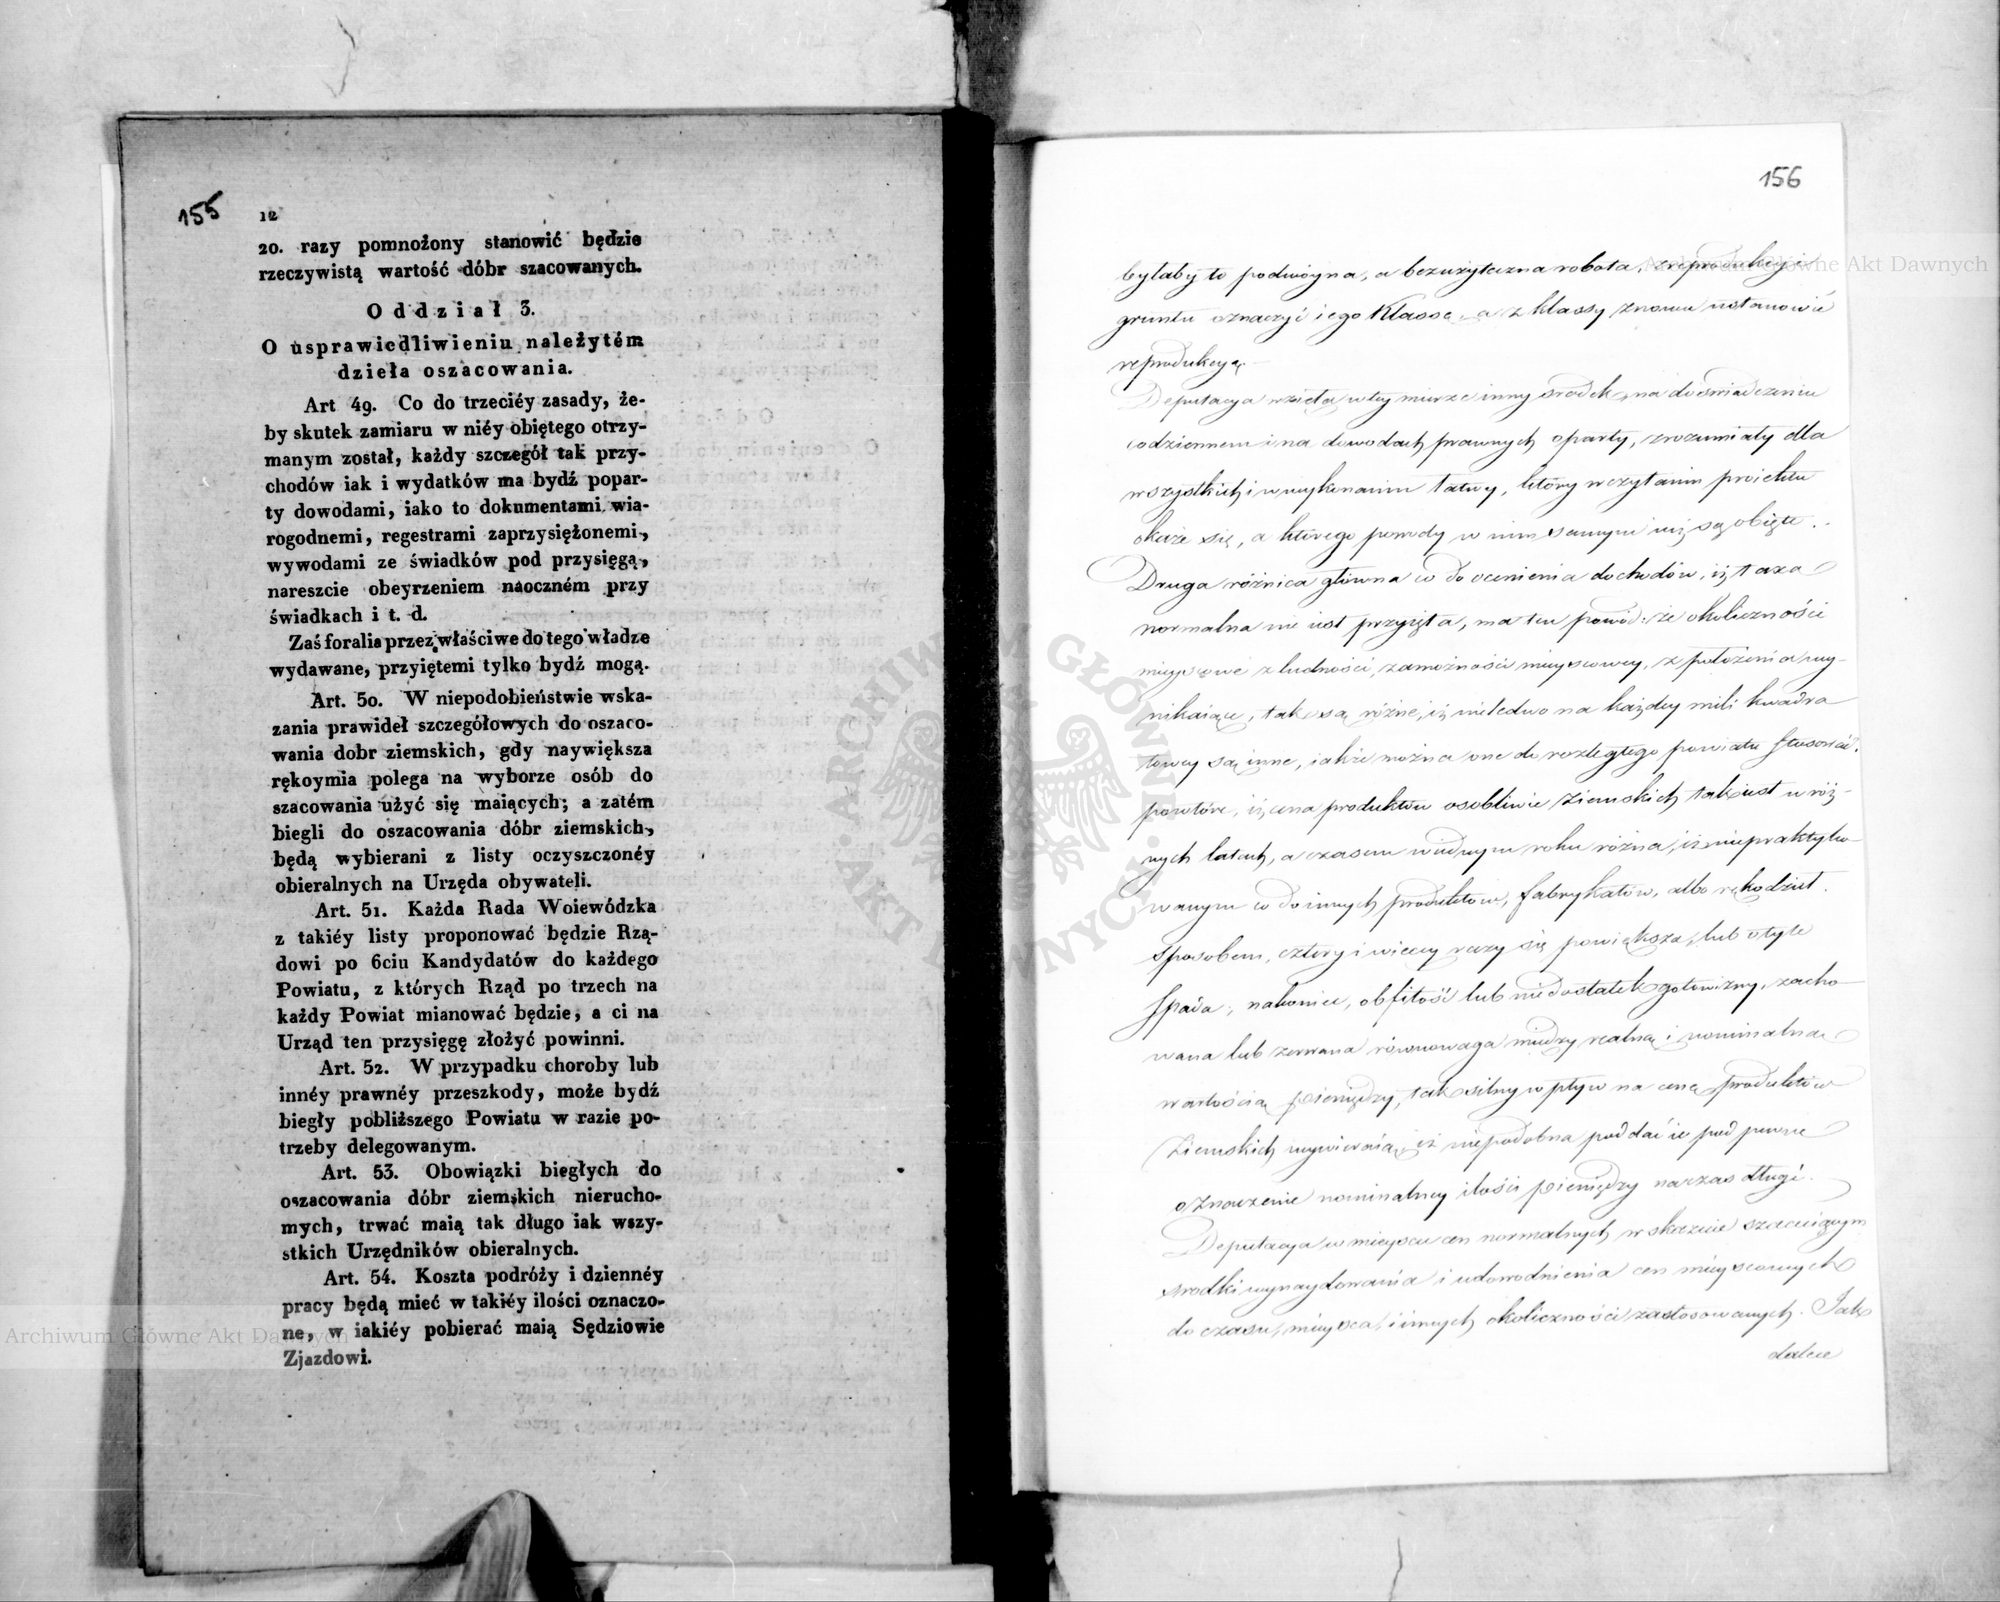 155
12
20. razy pomnożony stanowić będzie
rzeczywistą wartość dóbr szacowanych.
Oddział 3.
O usprawiedliwieniu należytém
dzieła oszacowania.
Art 49. Co do trzeciéy zasady, że-
by skutek zamiaru w niéy obiętego otrzy-
manym został, każdy szczegół tak przy-
chodów iak i wydatków ma bydź popar-
ty dowodami, iako to dokumentami wia-
rogodnemi, regestrami zaprzysiężonemi,
wywodami ze świadków pod przysięgą,
nareszcie obeyrzeniem naoczném przy
świadkach i t. d.
Zaś foralia przez właściwe do tego władze
wydawane, przyiętemi tylko bydź mogą.
Art. 50. W niepodobieństwie wska-
zania prawideł szczegółowych do oszaco-
wania dobr ziemskich, gdy naywiększa
rękoymia polega na wyborze osób do
szacowania użyć się maiących; a zatém
biegli do oszacowania dóbr ziemskich,
będą wybierani z listy oczyszczonéy
obieralnych na Urzęda obywateli.
Art. 51. Każda Rada Woiewódzka
z takiéy listy proponować będzie Rzą-
dowi po 6ciu Kandydatów do każdego
Powiatu, z których Rząd po trzech na
każdy Powiat mianować będzie, a ci na
Urząd ten przysięgę złożyć powinni.
Art. 52. W przypadku choroby lub
innéy prawnéy przeszkody, może bydź
biegły pobliższego Powiatu w razie po-
trzeby delegowanym.
Art. 53. Obowiązki biegłych do
oszacowania dóbr ziemskich nierucho-
mych, trwać maią tak długo iak wszy-
stkich Urzędników obieralnych.
Art. 54. Koszta podróży i dziennéy
pracy będą mieć w takiéy ilości oznaczo-
ne, w iakiéy pobierać maią Sędziowie
Zjazdowi.
156
byłaby to podwóyna, a bezużyteczna robota, z reprodukcyi
gruntu oznaczyć iego Klassę, a z klassy znowu ustanowić
reprodukcyą.
Deputacya wzięła w tey mierze inny środek, na doświadczeniu
codziennem i na dowodach prawnych oparty, zrozumiały dla
wszystkich i w wykonaniu łatwy, który w czytaniu proiektu
okaże się, a którego powody w nim samym iuż są obięte.
Druga różnica główna co do ocenienia dochodów, iż taxa
normalna nie iest przyięta, ma ten powód: że okoliczności
mieyscowe z ludności, zamożności mieyscowey, z położenia wy-
nikaiące, tak są różne, iż nieledwo na każdey mili kwadra
towey są inne, iakże można one do rozległego powiatu stosować.
powtóre, iż cena produktów osobliwie Ziemskich tak iest w róż-
nych latach, a czasem w iednym roku różna, iż niepraktyko-
wanym co do innych produktów, fabrykatów, albo rękodzieł
sposobem, cztery i więcey razy się powiększa, lub o tyle
spada; nakoniec, obfitość lub niedostatek gotowizny, zacho-
wana lub zerwana równowaga między realną i nominalną
wartością pieniędzy, tak silny wpływ na cenę produktów
Ziemskich wywieraią, iż niepodobna poddać ie pod pewne
oznaczenie nominalney ilości pieniędzy na czas długi.
Deputacya w mieyscu cen normalnych wskazuie szacuiącym
srodki wynaydowania i udowodnienia cen mieyscowych
do czasu, mieysca, i innych okoliczności zastosowanych. Jak
dalece
Archiwum Główne Akt Dawnych
Archiwum Główne Akt Dawnych